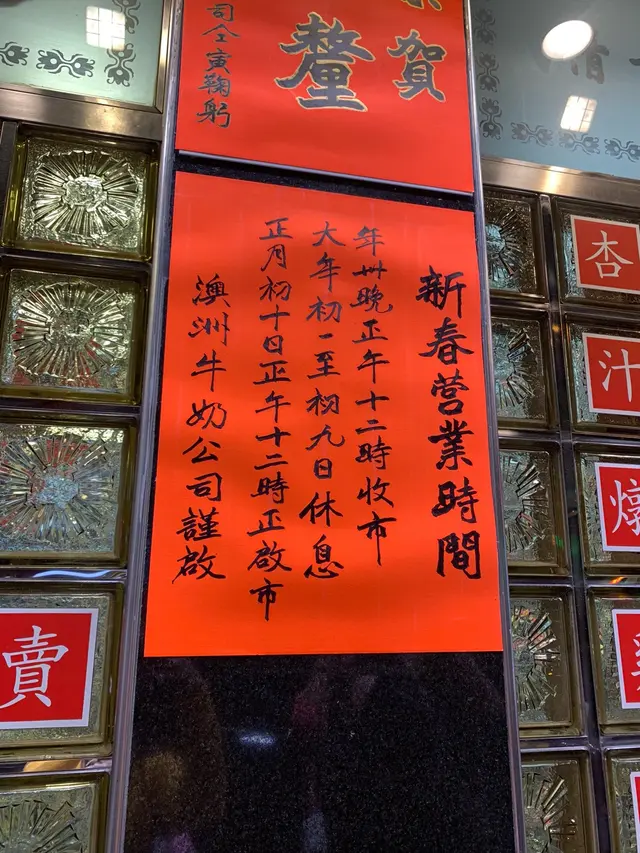 賀
釐
司仝寅鞠躬
新春營業時間
年卅晚正午十二時收市
大年初一至初九日休息
正月初十日正午十二時正啟市
澳洲牛奶公司謹啟
杏汁燉
賣